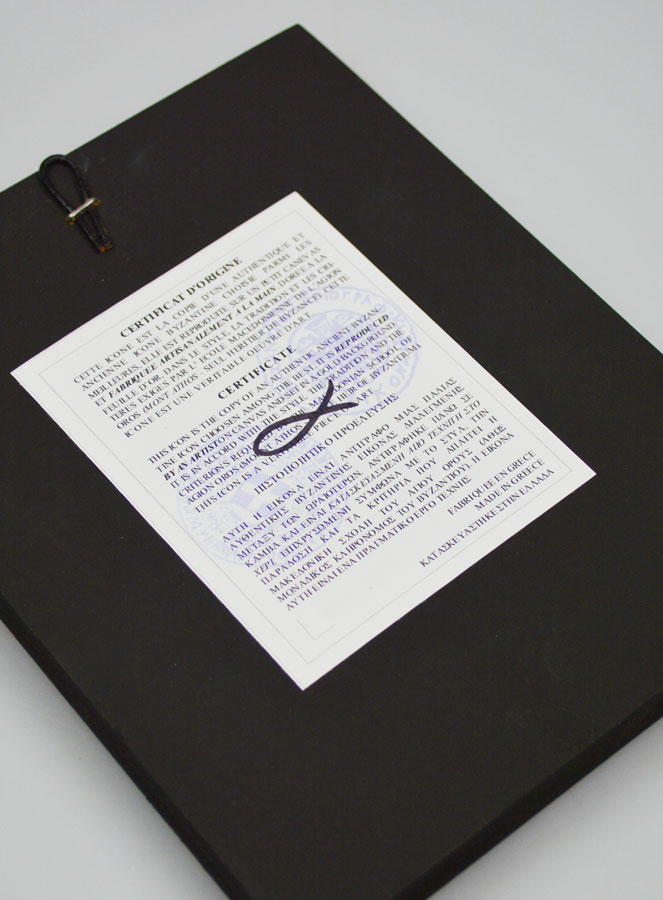 CERTIFICAT D'ORIGINE
CETTE ICONE EST LA COPIE D'UNE AUTHENTIQUE ET
ANCIENNE ICONE BYZANTINE CHOISIE PARMI LES
MEILLEURES. ELLE EST REPRODUITE SUR UN PETIT CANEVAS
ET FABRIQUEE ARTISANALEMENT A LA MAIN DOREE A LA
FEUILLE D'OR. DANS LE STYLE, LA TRADITION ET LES CRI-
TERES EXIGES PAR L'ECOLE MACEDONIENNE DE L'AGION
OROS (MONT ATHOS, SEUL HERITIER DE BYZANCE). CETTE
ICONE EST UNE VERITABLE OEUVRE D'ART.
CERTIFICATE
THIS ICON IS THE COPY OF AN AUTHENTIC ANCIENT BYZAN-
TINE ICON CHOOSES AMONG THE BEST. IT IS REPRODUCED
BY AN ARTIST ON CANVAS AND SET IN A GOLD BACKGROUND.
IT IS IN ACCORD WITH THE STYLE, THE TRADITION AND THE
CRITERIONS REQUIRED BY THE MACEDONIAN SCHOOL OF
AGION OROS (MOUNT ATHOS, HEIR OF BYZANTIUM)
THIS ICON IS A PIECE OF ART.
ΠΙΣΤΟΠΟΙΗΤΙΚΟ ΠΡΟΕΛΕΥΣΗΣ
ΑΥΤΗ Η ΕΙΚΟΝΑ ΕΙΝΑΙ ΑΝΤΙΓΡΑΦΟ ΜΙΑΣ ΠΑΛΙΑΣ
ΑΥΘΕΝΤΙΚΗΣ ΒΥΖΑΝΤΙΝΗΣ ΕΙΚΟΝΑΣ ΔΙΑΛΕΓΜΕΝΗΣ
ΜΕΤΑΞΥ ΤΩΝ ΩΡΑΙΟΤΕΡΩΝ ΑΝΤΙΓΡΑΦΗΚΕ ΠΑΝΩ ΣΕ
ΚΑΜΒΑ ΚΑΙ ΕΙΝΑΙ ΚΑΤΑΣΚΕΥΑΣΜΕΝΗ ΑΠΟ ΤΕΧΝΙΤΗ ΣΤΟ
ΧΕΡΙ, ΕΠΙΧΡΥΣΩΜΕΝΗ ΣΥΜΦΩΝΑ ΜΕ ΤΟ ΣΤΥΛ, ΤΗΝ
ΠΑΡΑΔΟΣΗ ΚΑΙ ΤΑ ΚΡΙΤΗΡΙΑ ΠΟΥ ΑΠΑΙΤΕΙ Η
ΜΑΚΕΔΟΝΙΚΗ ΣΧΟΛΗ ΤΟΥ ΑΓΙΟΥ ΟΡΟΥΣ (ΑΘΩΣ
ΜΟΝΑΔΙΚΟΣ ΚΛΗΡΟΝΟΜΟΣ ΤΟΥ ΒΥΖΑΝΤΙΟΥ). Η ΕΙΚΟΝΑ
ΑΥΤΗ ΕΙΝΑΙ ΕΝΑ ΠΡΑΓΜΑΤΙΚΟ ΕΡΓΟ ΤΕΧΝΗΣ
FABRIQUEE EN GRECE
MADE IN GREECE
ΚΑΤΑΣΚΕΥΑΣΤΗΚΕ ΣΤΗΝ ΕΛΛΑΔΑ